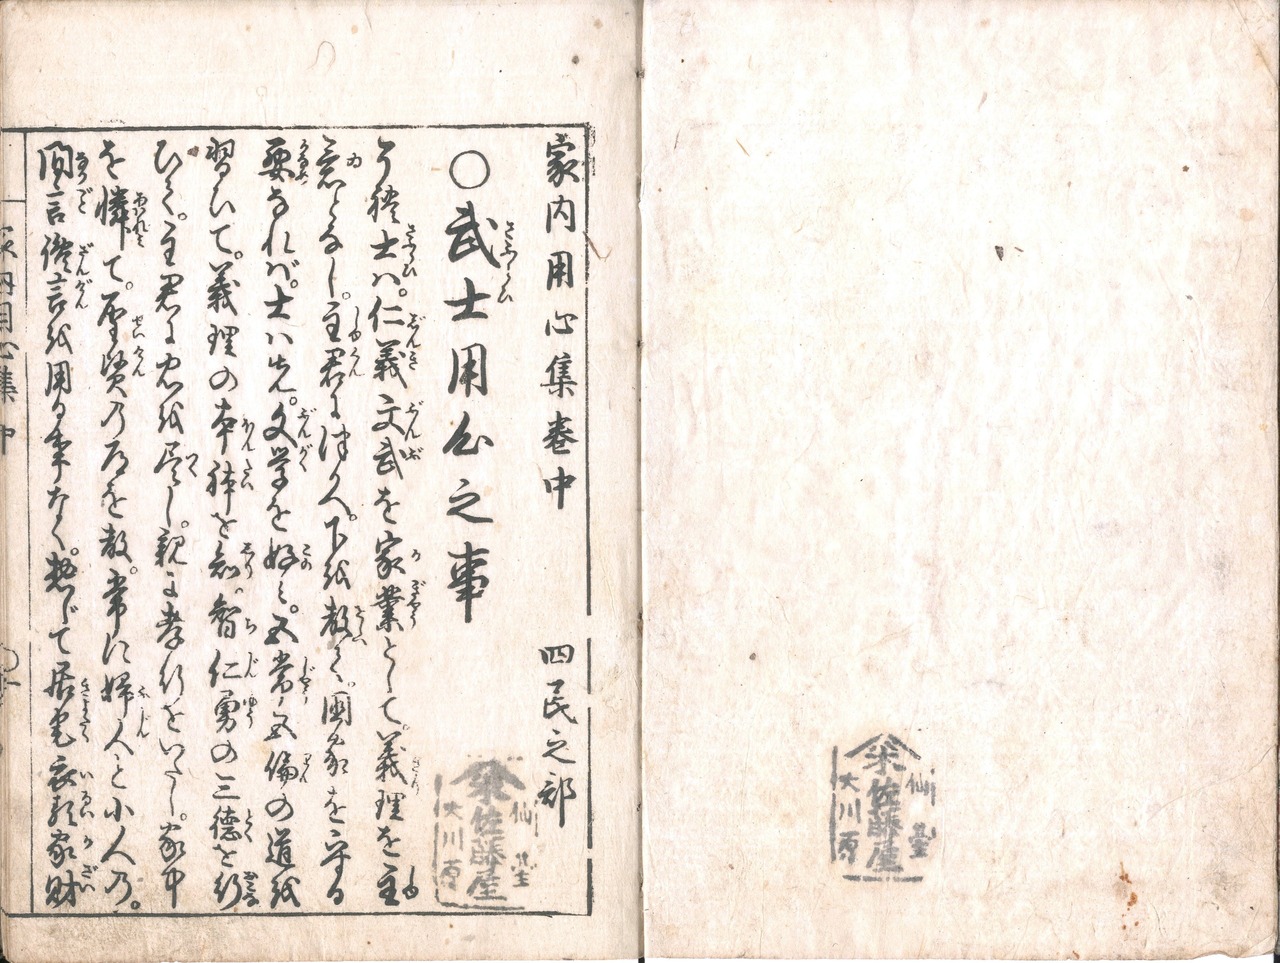 仙臺
佐藤屋
大川原
家内用心集巻中
四民之部
○武士用心之事
さふらひ
夫士ハ。仁義文武を家業として。義理を主
意となし。主君に仕へ。下を教え。国家を守る
要なれバ。士ハ先。文学を好ミ。五常五倫の道を
習いて。義理の本躰を知。智仁勇の三徳を行
ひて。主君に忠を尽し。親に孝行をいたし。家中
を憐て。聖賢の道を教。常に婦人と小人の。
間言讒言を用る事なく。惣じて居宅衣類家財
仙臺
佐藤屋
大川原